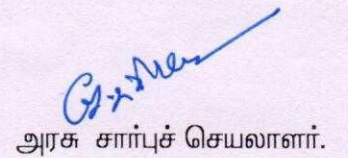 அரசு சார்புச் செயலாளர்.